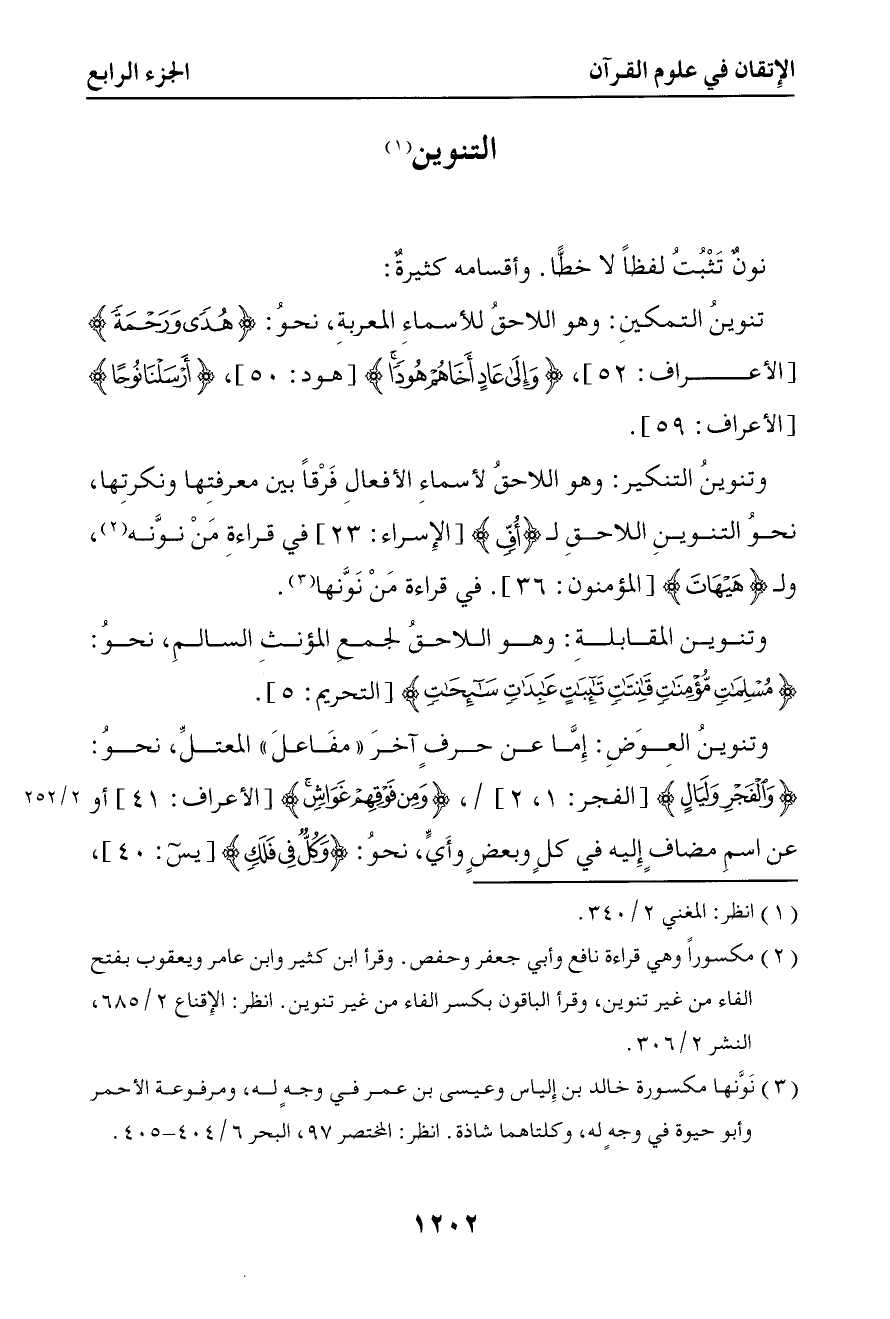 الإتقان في علوم القرآن الجزء الرابع
التنوين(١)
نونٌ تَثْبُتُ لفظاً لا خطًّا. وأقسامه كثيرةٌ:
تنوينُ التمكينِ: وهو اللاحقُ للأسماءِ المعربة، نحوُ: ﴿هُدًى وَرَحْمَةً﴾
[الأعراف: ٥٢]، ﴿وَإِلَىٰ عَادٍ أَخَاهُمْ هُودًا﴾ [هود: ٥٠]، ﴿أَرْسَلْنَا نُوحًا﴾
[الأعراف: ٥٩].
وتنوينُ التنكير: وهو اللاحقُ لأسماءِ الأفعالِ فَرْقاً بين معرفتِها ونكرتِها،
نحوُ التنوينِ اللاحقِ لـ﴿أُفٍّ﴾ [الإسراء: ٢٣] في قراءةِ مَنْ نوَّنه(٢)،
ولـ ﴿هَيْهَاتَ﴾ [المؤمنون: ٣٦]. في قراءة مَنْ نَوَّنها(٣).
وتنوين المقابلةِ: وهو اللاحقُ لجمعِ المؤنثِ السالمِ، نحوُ:
﴿مُسْلِمَٰتٍ مُّؤْمِنَٰتٍ قَٰنِتَٰتٍ تَٰٓئِبَٰتٍ عَٰبِدَٰتٍ سَٰٓئِحَٰتٍ﴾ [التحريم: ٥].
وتنوينُ العِوَضِ: إمَّا عن حرفٍ آخرَ «مفاعلَ» المعتلِّ، نحوُ:
﴿وَٱلْفَجْرِ وَلَيَالٍ﴾ [الفجر: ١، ٢] /، ﴿وَمِن فَوْقِهِمْ غَوَاشٍ﴾ [الأعراف: ٤١] أو ٢٥٢/٢
عن اسمٍ مضافٍ إليه في كلٍ وبعضٍ وأيٍّ، نحوُ: ﴿وَكُلٌّ فِي فَلَكٍ﴾ [يسٓ: ٤٠]،
(١) انظر: المغني ٢/ ٣٤٠.
(٢) مكسوراً وهي قراءة نافع وأبي جعفر وحفص. وقرأ ابن كثير وابن عامر ويعقوب بفتح
الفاء من غير تنوين، وقرأ الباقون بكسر الفاء من غير تنوين. انظر: الإقناع ٢/ ٦٨٥،
النشر ٢/ ٣٠٦.
(٣) نَوَّنها مكسورة خالد بن إلياس وعيسى بن عمر في وجهٍ له، ومرفوعة الأحمر
وأبو حيوة في وجهٍ له، وكلتاهما شاذة. انظر: المختصر ٩٧، البحر ٦/ ٤٠٤–٤٠٥.
١٢٠٢